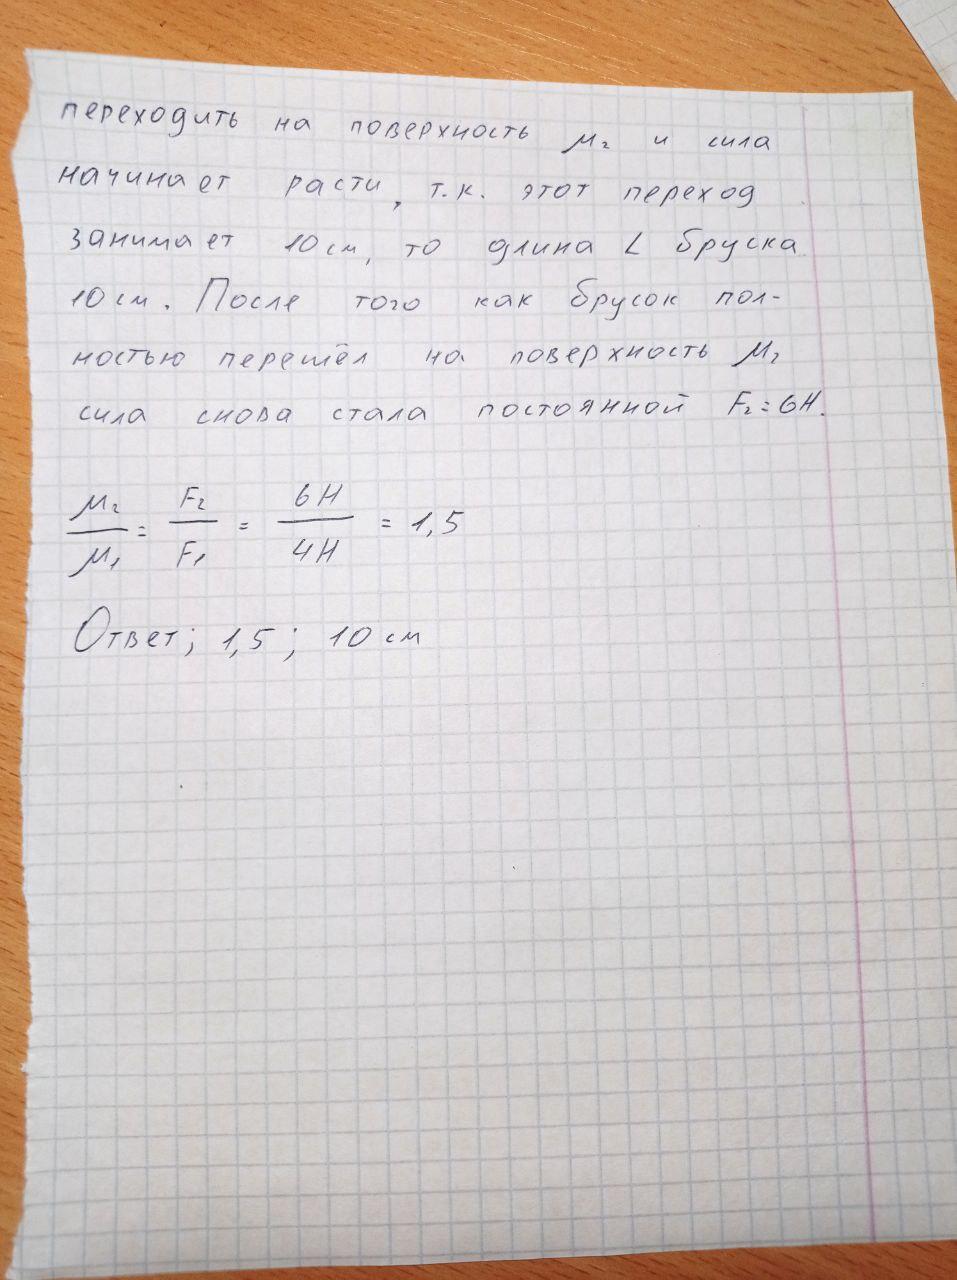 переходить на поверхность μ₂ и сила
начинает расти, т.к. этот переход
занимает 10 см, то длина L бруска
10 см. После того как брусок пол-
ностью перешёл на поверхность μ₂
сила снова стала постоянной F₂=6H.
μ₂/μ₁ = F₂/F₁ = 6H/4H = 1,5
Ответ; 1,5; 10 см